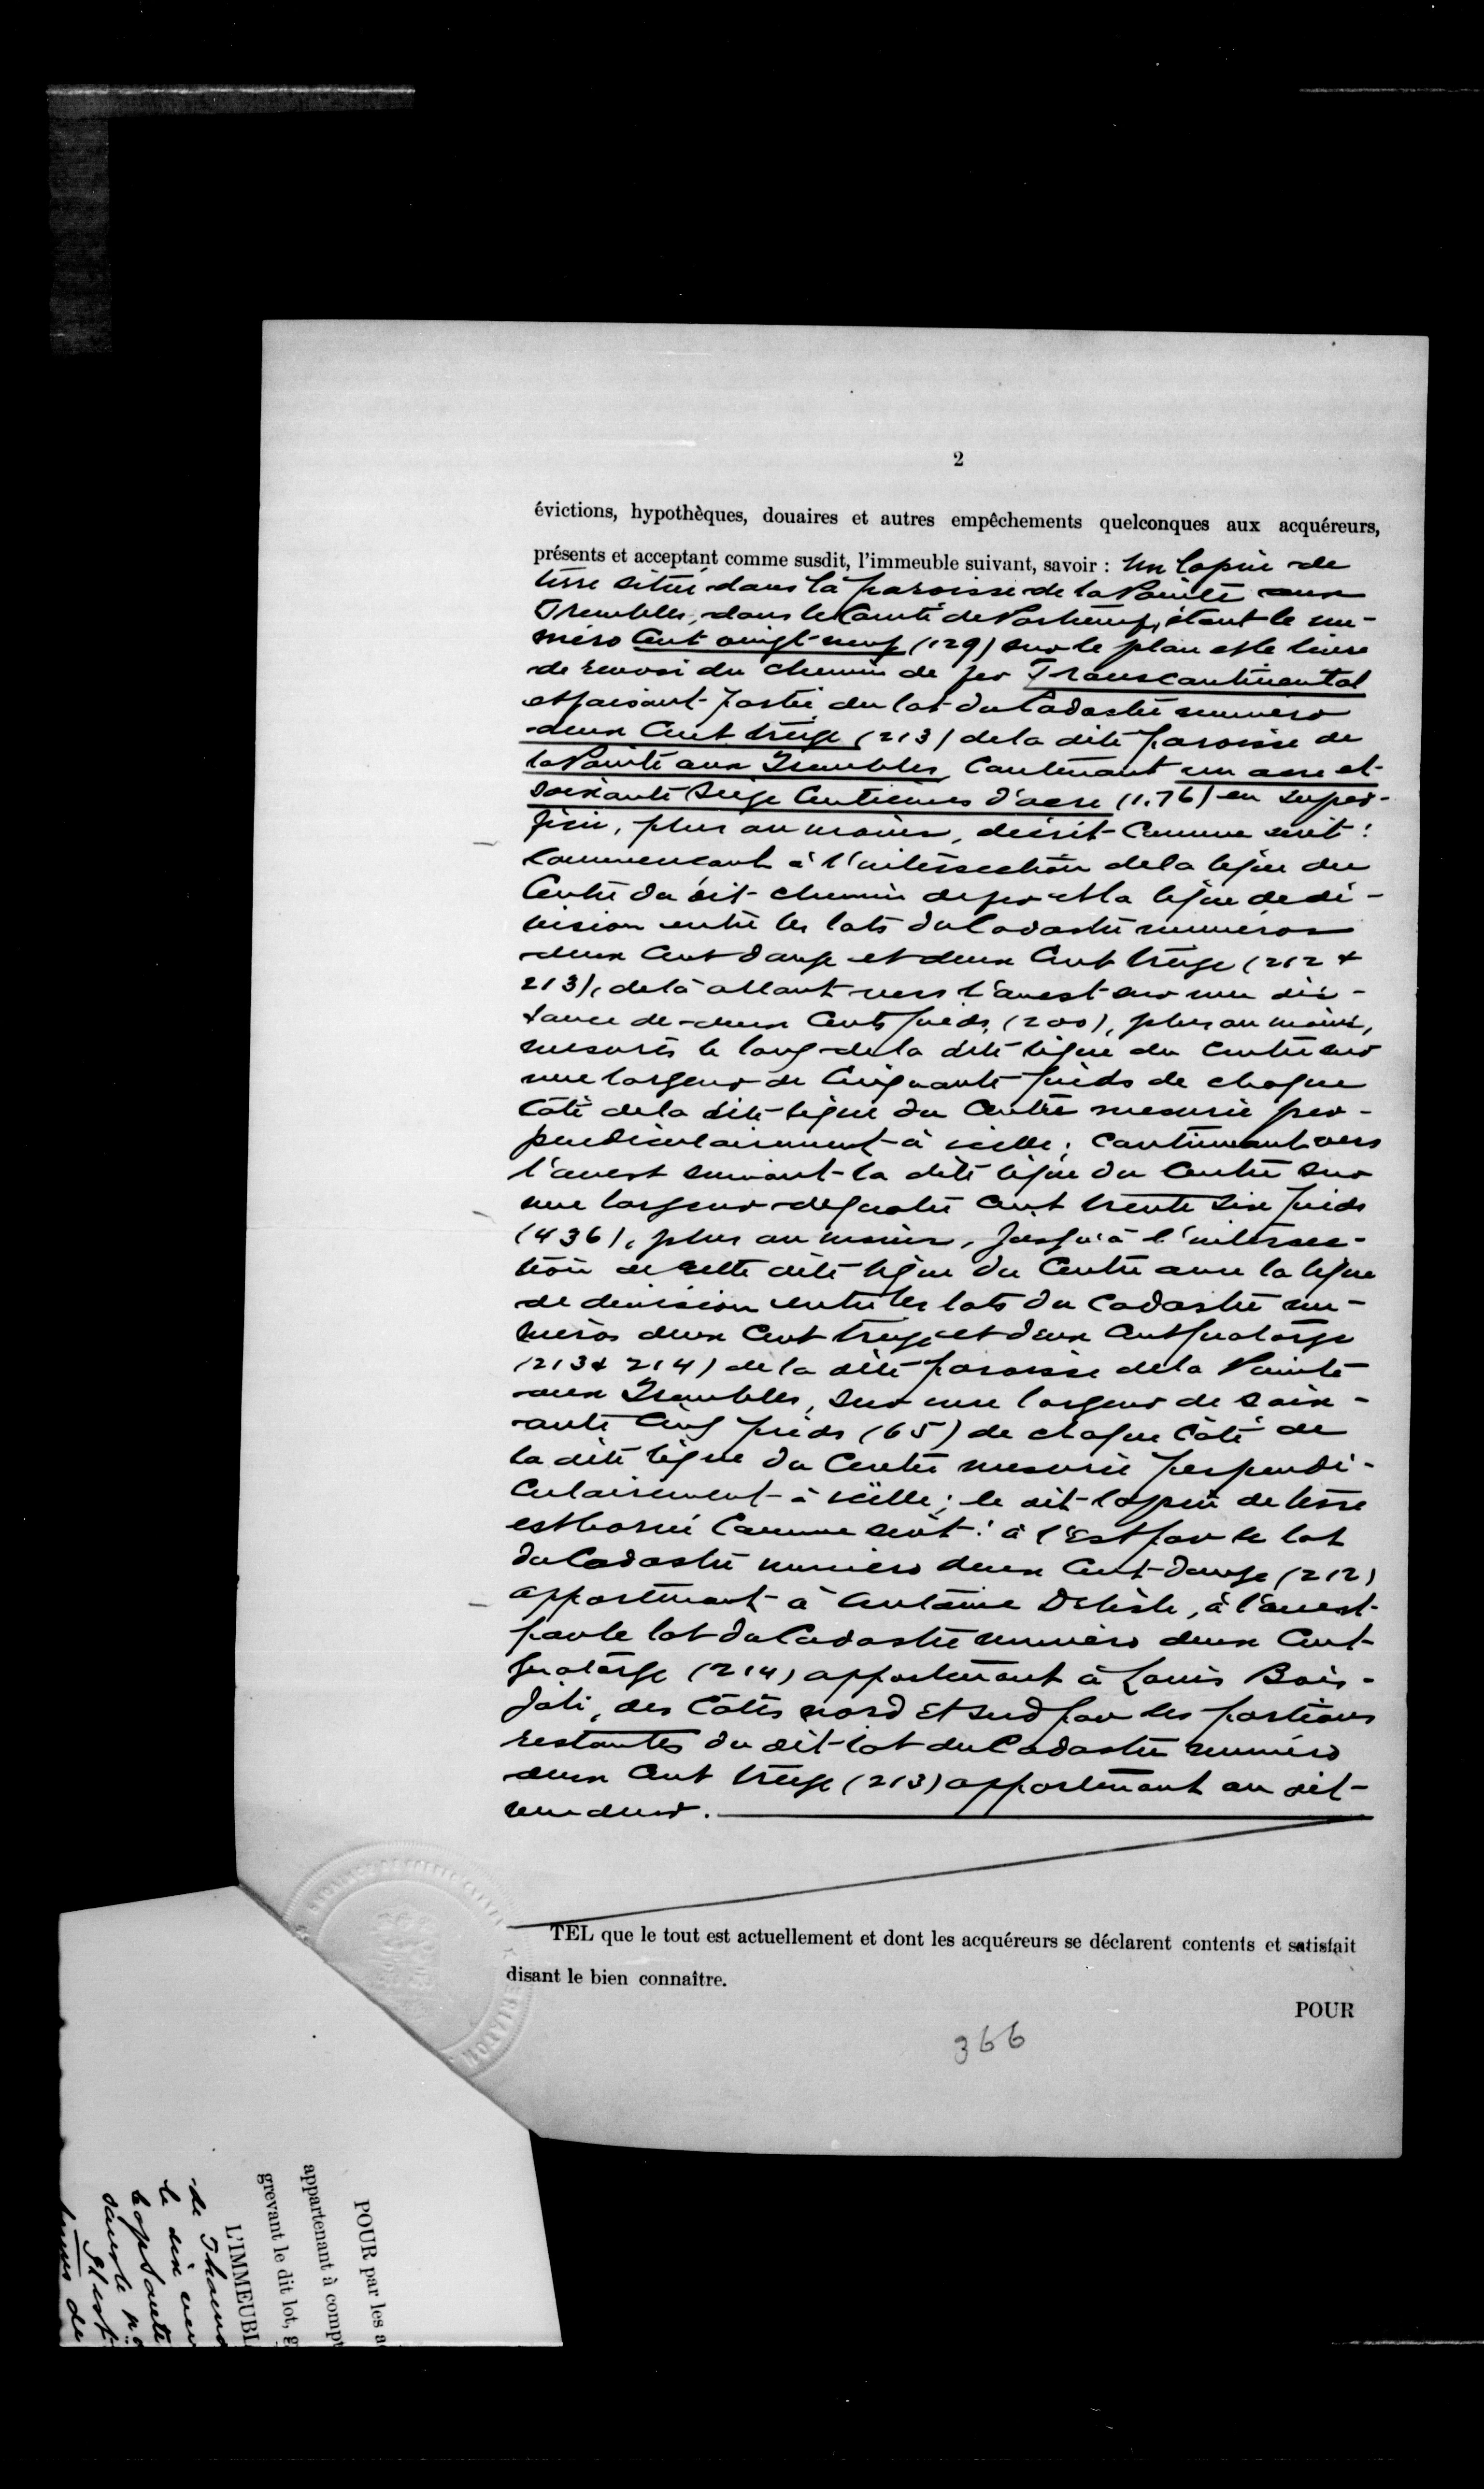 2
évictions, hypothèques, douaires et autres empêchements quelconques aux acquéreurs,
présents et acceptant comme susdit, l'immeuble suivant, savoir : Un lopin de
terre situé dans la paroisse de la Pointe aux
Trembles, dans le Comté de Portneuf, étant le nu-
méro Cent vingt-neuf (129) sur le plan et le livre
de renvoi du chemin de fer Transcontinental
et faisant partie du lot du Cadastre numéro
deux Cent treize (213) de la dite paroisse de
la Pointe aux Trembles, Contenant un acre et
Soixante Seize Centièmes d'acre (1.76) en super-
ficie, plus ou moins, décrit Comme suit :
Commencant à l'intersection de la ligne du
Centre du dit chemin de fer et la ligne de di-
vision entre les lots du Cadastre numéros
deux Cent douze et deux Cent treize (212 &
213), de là allant vers l'ouest sur une dis-
tance de deux Cents pieds (200), plus ou moins,
mesurés le long de la dite ligne du Centre sur
une largeur de Cinquante pieds de chaque
Côté de la dite ligne du Centre mesurée per-
pendiculairement à icelle ; Continuant vers
l'ouest suivant la dite ligne du Centre sur
une largeur de quatre Cent trente Six pieds
(436), plus ou moins, jusqu'à l'intersec-
tion de cette dite ligne du Centre avec la ligne
de division entre les lots du Cadastre nu-
méros deux Cent treize et deux Cent quatorze
(213 & 214) de la dite paroisse de la Pointe
aux Trembles, sur une largeur de soix-
ante Cinq pieds (65) de chaque Côté de
la dite ligne du Centre mesurée perpendi-
Culairement à icelle ; le dit lopin de terre
est borné Comme suit : à l'Est par le lot
du Cadastre numéro deux Cent-douze (212)
appartenant à Antoine Delisle, à l'ouest
par le lot du Cadastre numéro deux Cent
quatorze (214) appartenant à Louis Bois-
joli, des Côtés nord Et sud par les portions
restantes du dit lot du Cadastre numéro
deux Cent treize (213) appartenant au dit
vendeur.
TEL que le tout est actuellement et dont les acquéreurs se déclarent contents et satisfait
disant le bien connaître.
POUR
366
POUR par les a
appartenant à compt
grevant le dit lot, g
L'IMMEUBL
de Thom
le dix